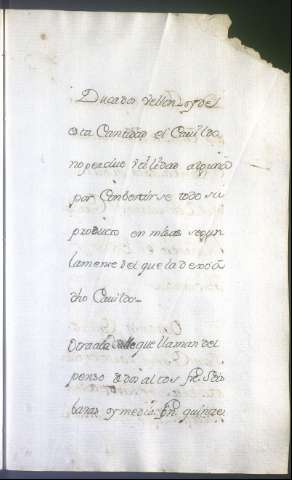 Ducados Vellon, y de
esta Cantidad el Cavildo
no percive utilidad alguna
por Combertirse todo su
producto en misas segun
lamente del que la dexo a
dho Cavildo
Otra a la Calle que llaman del
penso de dos altos
baras y media, quinze